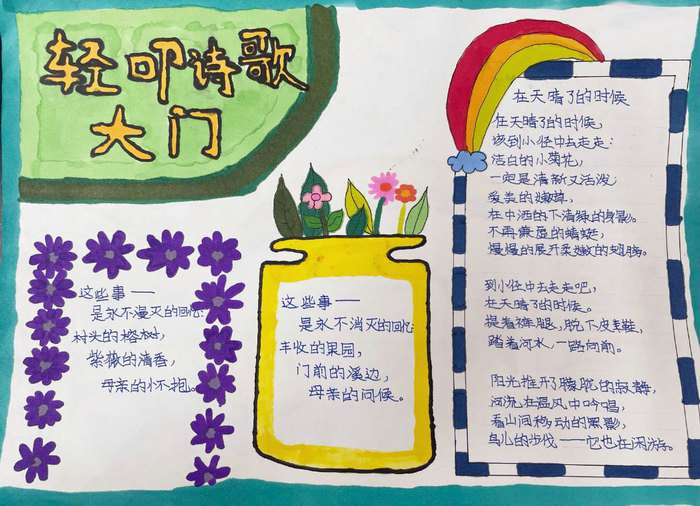 轻叩诗歌
大门
这些事——
是永不漫灭的回忆:
村头的榕树,
紫薇的清香,
母亲的怀抱。
这些事——
是永不消灭的回忆:
丰收的果园,
门前的溪边,
母亲的问候。
在天晴了的时候
在天晴了的时候,
该到小径中去走走:
洁白的小菊花,
一定是清新又活泼
爱美的嫩草,
在中洒的下清绿的身影。
不再胆怯的蝴蝶,
慢慢的展开柔嫩的翅膀。
到小径中去走走吧,
在天晴了的时候。
提着裤腿,脱下皮鞋,
踏着河水,一路向前。
阳光推开了朦胧的寂静,
河流在温风中吟唱,
看山间移动的黑影,
鸟儿的步伐——它也在闲游。